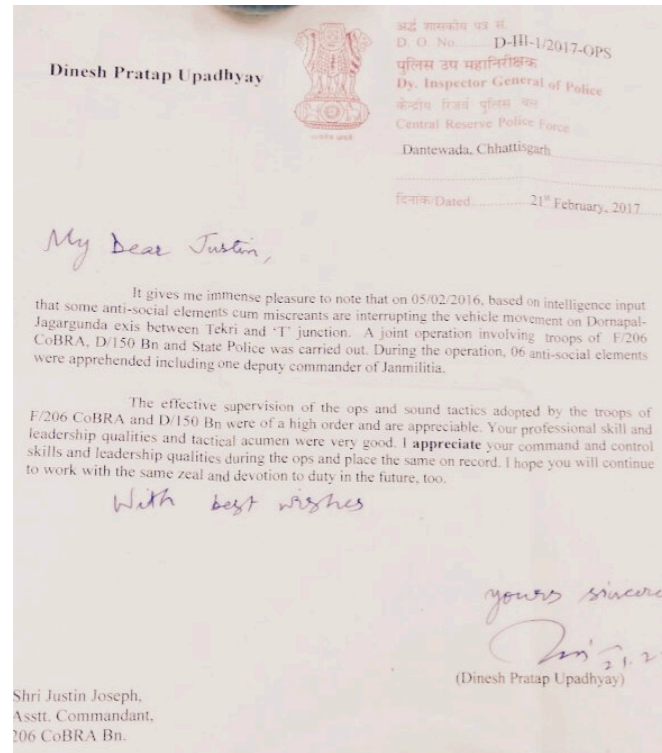 अर्द्ध शासकीय पत्र सं.
D. O. No. D-III-1/2017-OPS
पुलिस उप महानिरीक्षक
Dy. Inspector General of Police
केन्द्रीय रिजर्व पुलिस बल
Central Reserve Police Force
Dantewada, Chhattisgarh
दिनांक/Dated 21st February, 2017
Dinesh Pratap Upadhyay
सत्यमेव जयते
My Dear Justin,
It gives me immense pleasure to note that on 05/02/2016, based on intelligence input
that some anti-social elements cum miscreants are interrupting the vehicle movement on Dornapal-
Jagargunda exis between Tekri and 'T' junction. A joint operation involving troops of F/206
CoBRA, D/150 Bn and State Police was carried out. During the operation, 06 anti-social elements
were apprehended including one deputy commander of Janmilitia.
The effective supervision of the ops and sound tactics adopted by the troops of
F/206 CoBRA and D/150 Bn were of a high order and are appreciable. Your professional skill and
leadership qualities and tactical acumen were very good. I appreciate your command and control
skills and leadership qualities during the ops and place the same on record. I hope you will continue
to work with the same zeal and devotion to duty in the future, too.
With best wishes
yours sincere
(Dinesh Pratap Upadhyay)
Shri Justin Joseph,
Asstt. Commandant,
206 CoBRA Bn.